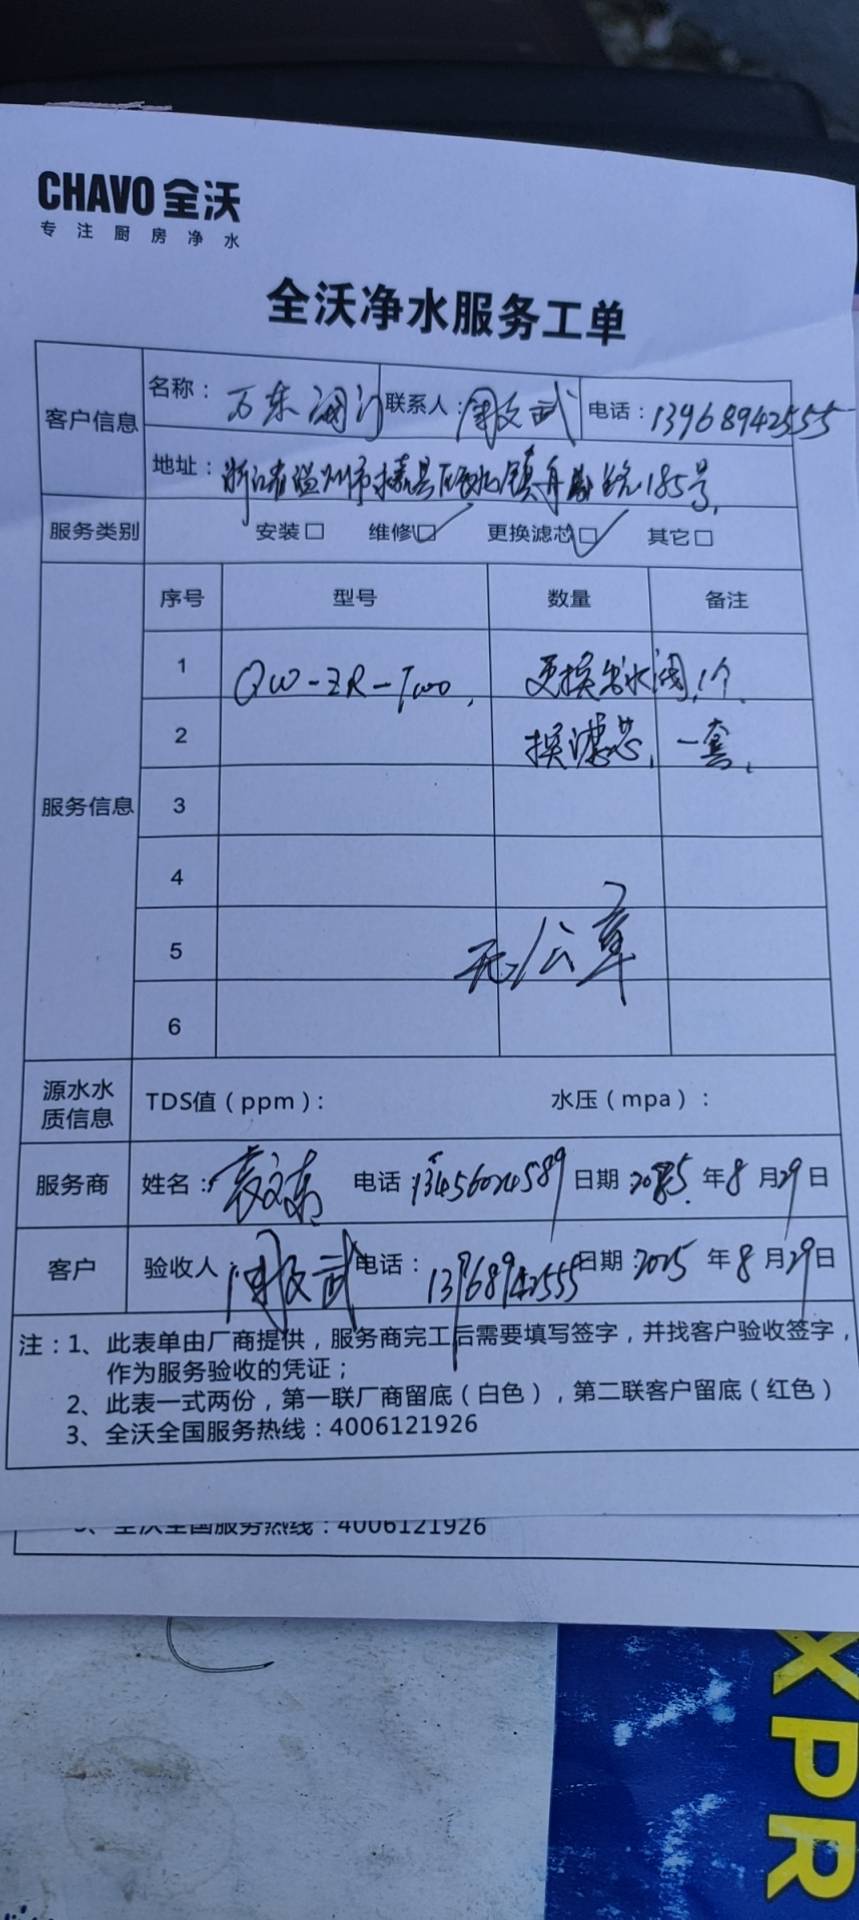 CHAVO 全沃
专注厨房净水
全沃净水服务工单
客户信息 名称：万东阀门 联系人：周文武 电话：13968942555
地址：浙江省温州市永嘉县瓯北镇 185号
服务类别 安装□ 维修☑ 更换滤芯☑ 其它□
服务信息 序号 型号 数量 备注
1 QW-ZR-Two, 更换出水阀,1个
2 换滤芯,一套
3
4
5 无公章
6
源水水质信息 TDS值（ppm）： 水压（mpa）：
服务商 姓名： 电话：13456024589 日期：2025年8月29日
客户 验收人 周文武 电话：13968942555 日期：2025年8月29日
注：1、此表单由厂商提供，服务商完工后需要填写签字，并找客户验收签字，
作为服务验收的凭证；
2、此表一式两份，第一联厂商留底（白色），第二联客户留底（红色）
3、全沃全国服务热线：4006121926
3、全沃全国服务热线：4006121926
XPR